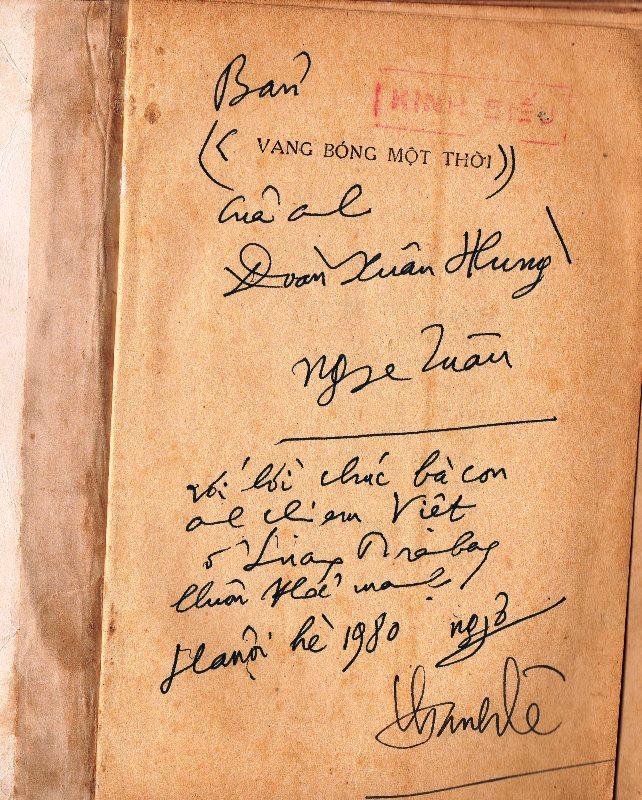 Bản
KÍNH BIẾU
(( VANG BÓNG MỘT THỜI ))
của anh
Đoàn Xuân Hưng
Ngọc Tuân
với lời chúc bà con
anh chị em Việt
ở
luôn khoẻ mạnh
Hanội hè 1980 ngỏ